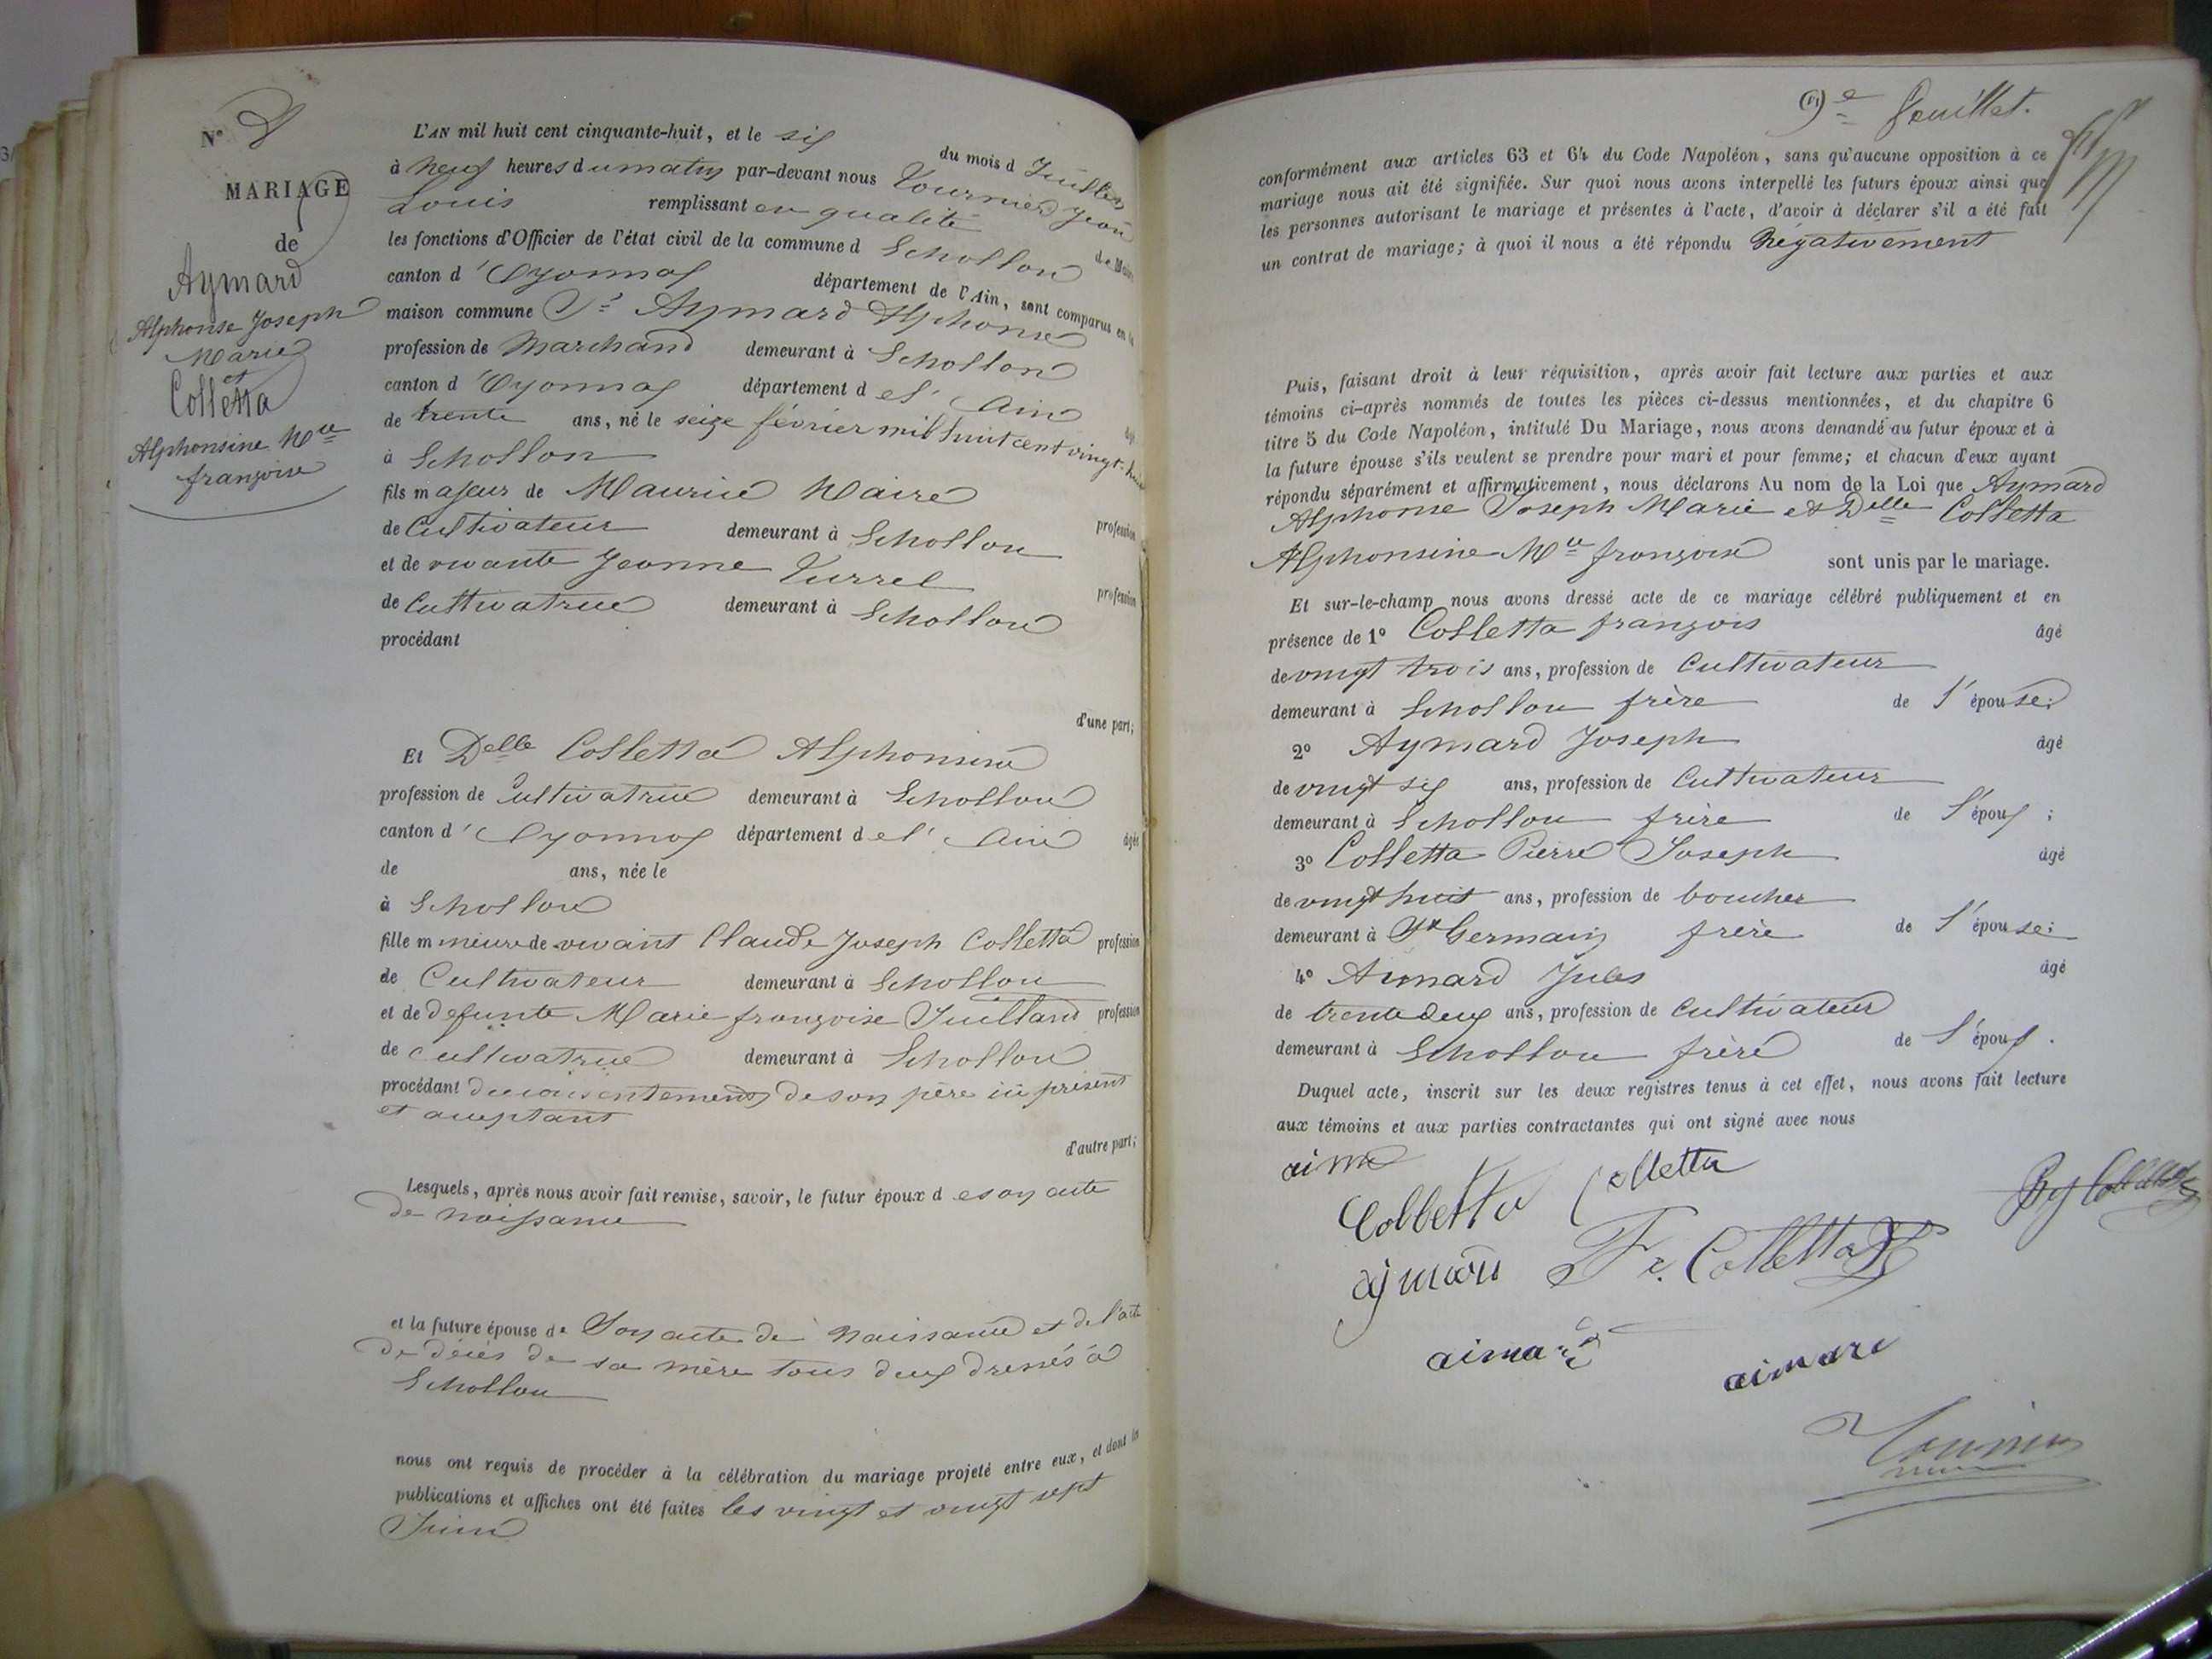 N° 8
MARIAGE
de
Aymard
Alphonse Joseph
Marie
et
Colletta
Alphonsine Mie
françoise
L'AN mil huit cent cinquante-huit, et le six du mois d Juillet
à neuf heures du matin par-devant nous Tournier Jean
Louis remplissant en qualité de Maire
les fonctions d'Officier de l'état civil de la commune d Echollon
canton d'Oyonnax département de l'Ain, sont comparus en la
maison commune Sr Aymard Alphonse
profession de Marchand demeurant à Echollon
canton d'Oyonnax département de l'Ain
de trente ans, né le seize février mil huit cent vingt-huit
à Echollon
fils majeur de Maurice Maire profession
de Cultivateur demeurant à Echollon
et de vivante Jeanne Burrel profession
de Cultivatrice demeurant à Echollon
procédant
d'une part;
Et Delle Colletta Alphonsine
profession de Cultivatrice demeurant à Echollon
canton d'Oyonnax département de l'Ain âgée
de ans, née le
à Echollon
fille mineure de vivant Claude Joseph Colletta profession
de Cultivateur demeurant à Echollon
et de défunte Marie françoise Juilland profession
de cultivatrice demeurant à Echollon
procédant du consentement de son père ici présent
et acceptant
d'autre part;
Lesquels, après nous avoir fait remise, savoir, le futur époux de son acte
de naissance
et la future épouse de Son acte de naissance et de l'acte
de décès de sa mère tous deux dressés à
Echollon
nous ont requis de procéder à la célébration du mariage projeté entre eux, et dont les
publications et affiches ont été faites les vingt et vingt sept
Juin
9e feuillet.
conformément aux articles 63 et 64 du Code Napoléon, sans qu'aucune opposition à ce
mariage nous ait été signifiée. Sur quoi nous avons interpellé les futurs époux ainsi que
les personnes autorisant le mariage et présentes à l'acte, d'avoir à déclarer s'il a été fait
un contrat de mariage; à quoi il nous a été répondu Négativement
Puis, faisant droit à leur réquisition, après avoir fait lecture aux parties et aux
témoins ci-après nommés de toutes les pièces ci-dessus mentionnées, et du chapitre 6
titre 5 du Code Napoléon, intitulé Du Mariage, nous avons demandé au futur époux et à
la future épouse s'ils veulent se prendre pour mari et pour femme; et chacun d'eux ayant
répondu séparément et affirmativement, nous déclarons Au nom de la Loi que Aymard
Alphonse Joseph Marie et Delle Colletta
Alphonsine Mie françoise sont unis par le mariage.
Et sur-le-champ nous avons dressé acte de ce mariage célébré publiquement et en
présence de 1° Colletta françois âgé
de vingt trois ans, profession de Cultivateur
demeurant à Echollon frère de l'épouse;
2° Aymard Joseph âgé
de vingt six ans, profession de Cultivateur
demeurant à Echollon frère de l'époux;
3° Colletta Pierre Joseph âgé
de vingt huit ans, profession de boucher
demeurant à St Germain frère de l'épouse;
4° Aimard Jules âgé
de trente deux ans, profession de Cultivateur
demeurant à Echollon frère de l'époux.
Duquel acte, inscrit sur les deux registres tenus à cet effet, nous avons fait lecture
aux témoins et aux parties contractantes qui ont signé avec nous
Colletta Colletta
F. Colletta
aimard
aimard
Tournier